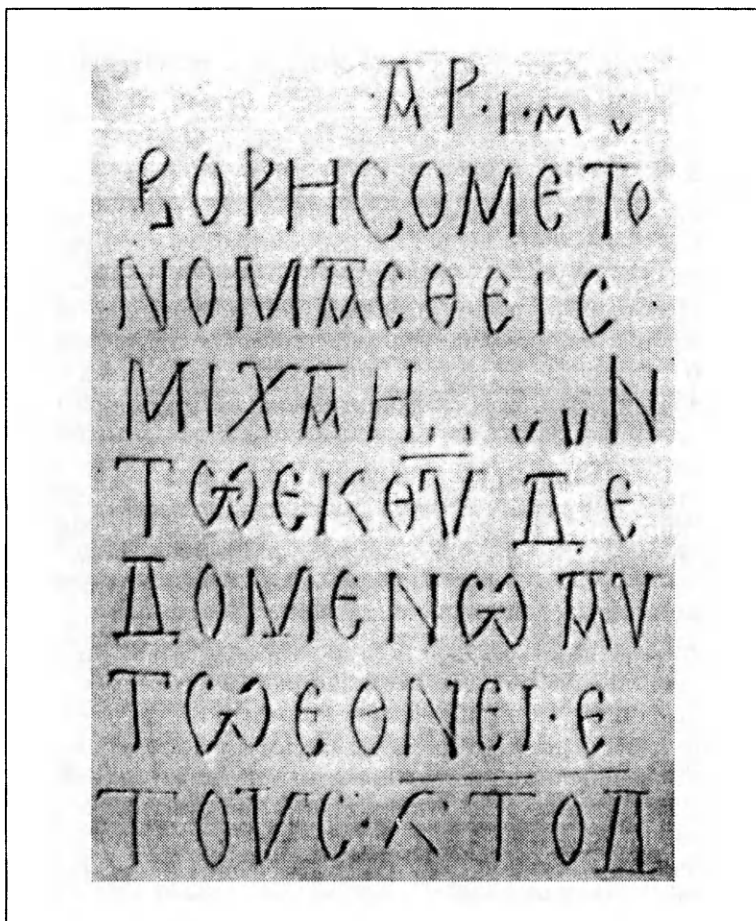 ΑΡ·Ι·
ΒΟΡΗϹΟΜΕΤΟ
ΝΟΜΑϹΘΕΙϹ
ΜΙΧΑΗ....Ν
ΤѠΕΚΘ̅Υ̅ΔΕ
ΔΟΜΕΝѠΑΥ
ΤѠΕΘΝΕΙ·Ε
ΤΟΥϹ·Ϛ̅Τ̅Ο̅Δ̅